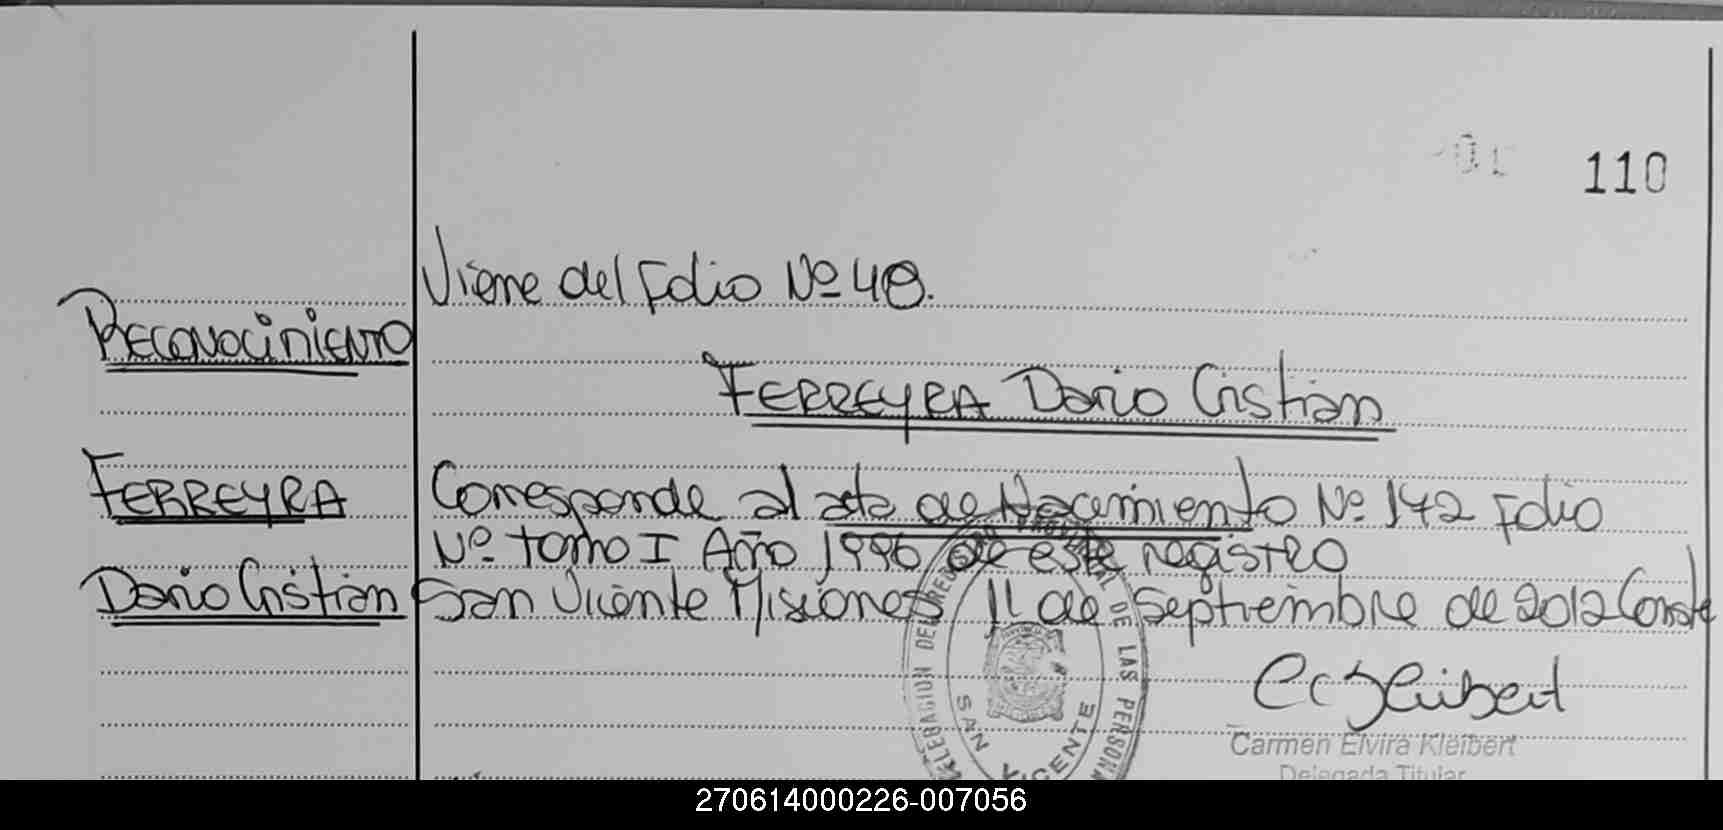 110
Viene del Folio Nº 48.
Reconocimiento
FERREYRA Dario Cristian
FERREYRA
Corresponde al acta de Nacimiento Nº 142 Folio
Nº tomo I Año 1996 de este registro
Dario Cristian
San Vicente Misiones 11 de Septiembre de 2012 Conste
DELEGACION DEL REG PROVINCIAL DE LAS PERSONA
SAN VICENTE
Carmen Elvira Kleibert
Delegada Titular
270614000226-007056